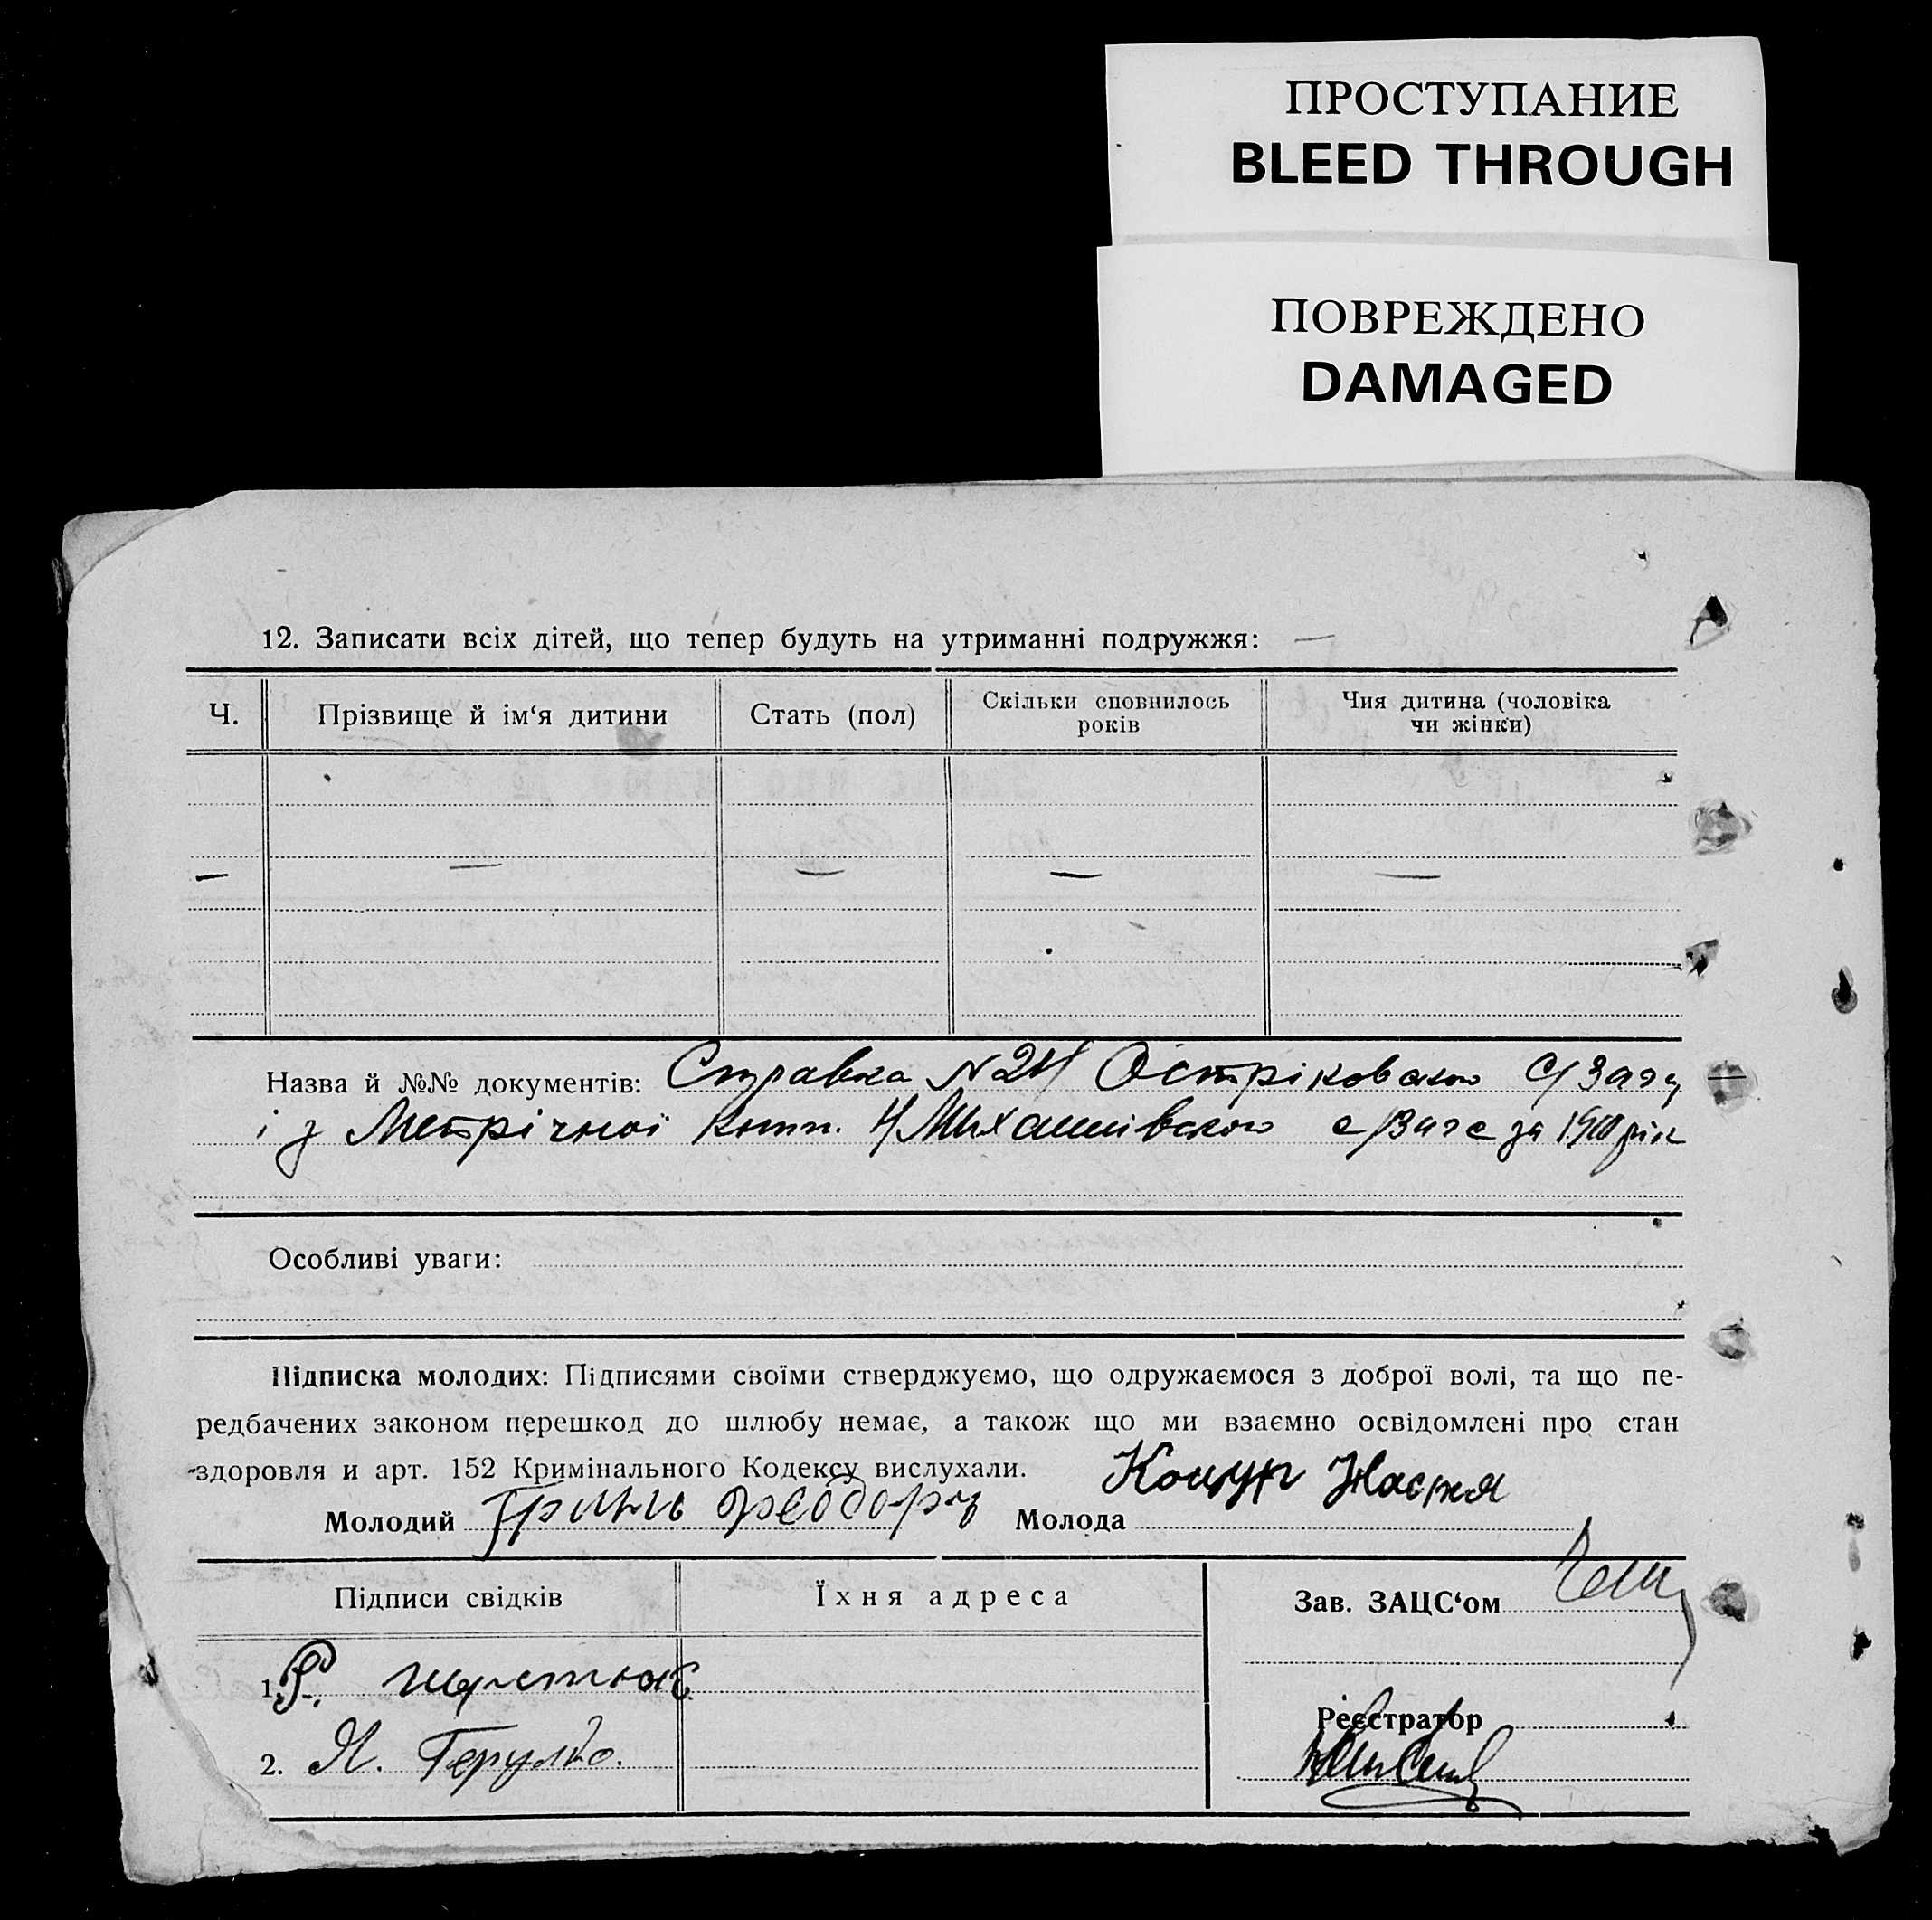 ПРОСТУПАНИЕ
BLEED THROUGH
ПОВРЕЖДЕНО
DAMAGED
12. Записати всіх дітей, що тепер будуть на утриманні подружжя: —
Ч. Прізвище й ім‘я дитини Стать (пол) Скільки сповнилось років Чия дитина (чоловіка чи жінки)
— — — — —
Назва й №№ документів: Справка N 24 Остріковською С/Загу
і з Метрічної книги. Н/Михайлівською с/Заге за рік
Особливі уваги:
Підписка молодих: Підписями своїми стверджуємо, що одружаємося з доброї волі, та що пе-
редбачених законом перешкод до шлюбу немає, а також що ми взаємно освідомлені про стан
здоровля и арт. 152 Кримінального Кодексу вислухали.
Молодий Гринь Феодор Молода Коцур Настя
Підписи свідків Їхня адреса Зав. ЗАЦС‘ом
1. Р. Шустюк
Реєстратор
2. Я. Герулко.